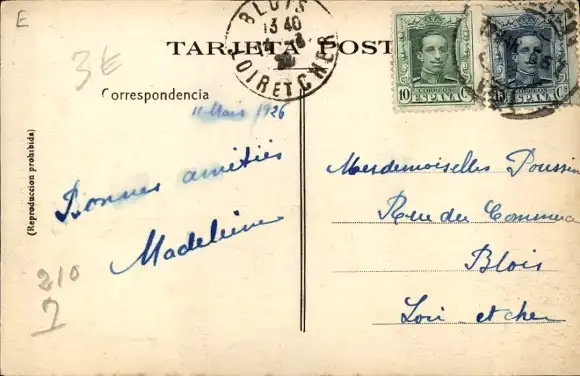 E
BLOIS
13 40
LOIR ET CHER
TARJETA POST
3€
10 CORREOS Cs
ESPAÑA
15 CORREOS Cs
ESPAÑA
Correspondencia
11 Mars 1926
(Reproduccion prohibida)
Bonnes amitiés
Madeleine
210
Mesdemoiselles Poussin
Rue du Commerce
Blois
Loir et cher